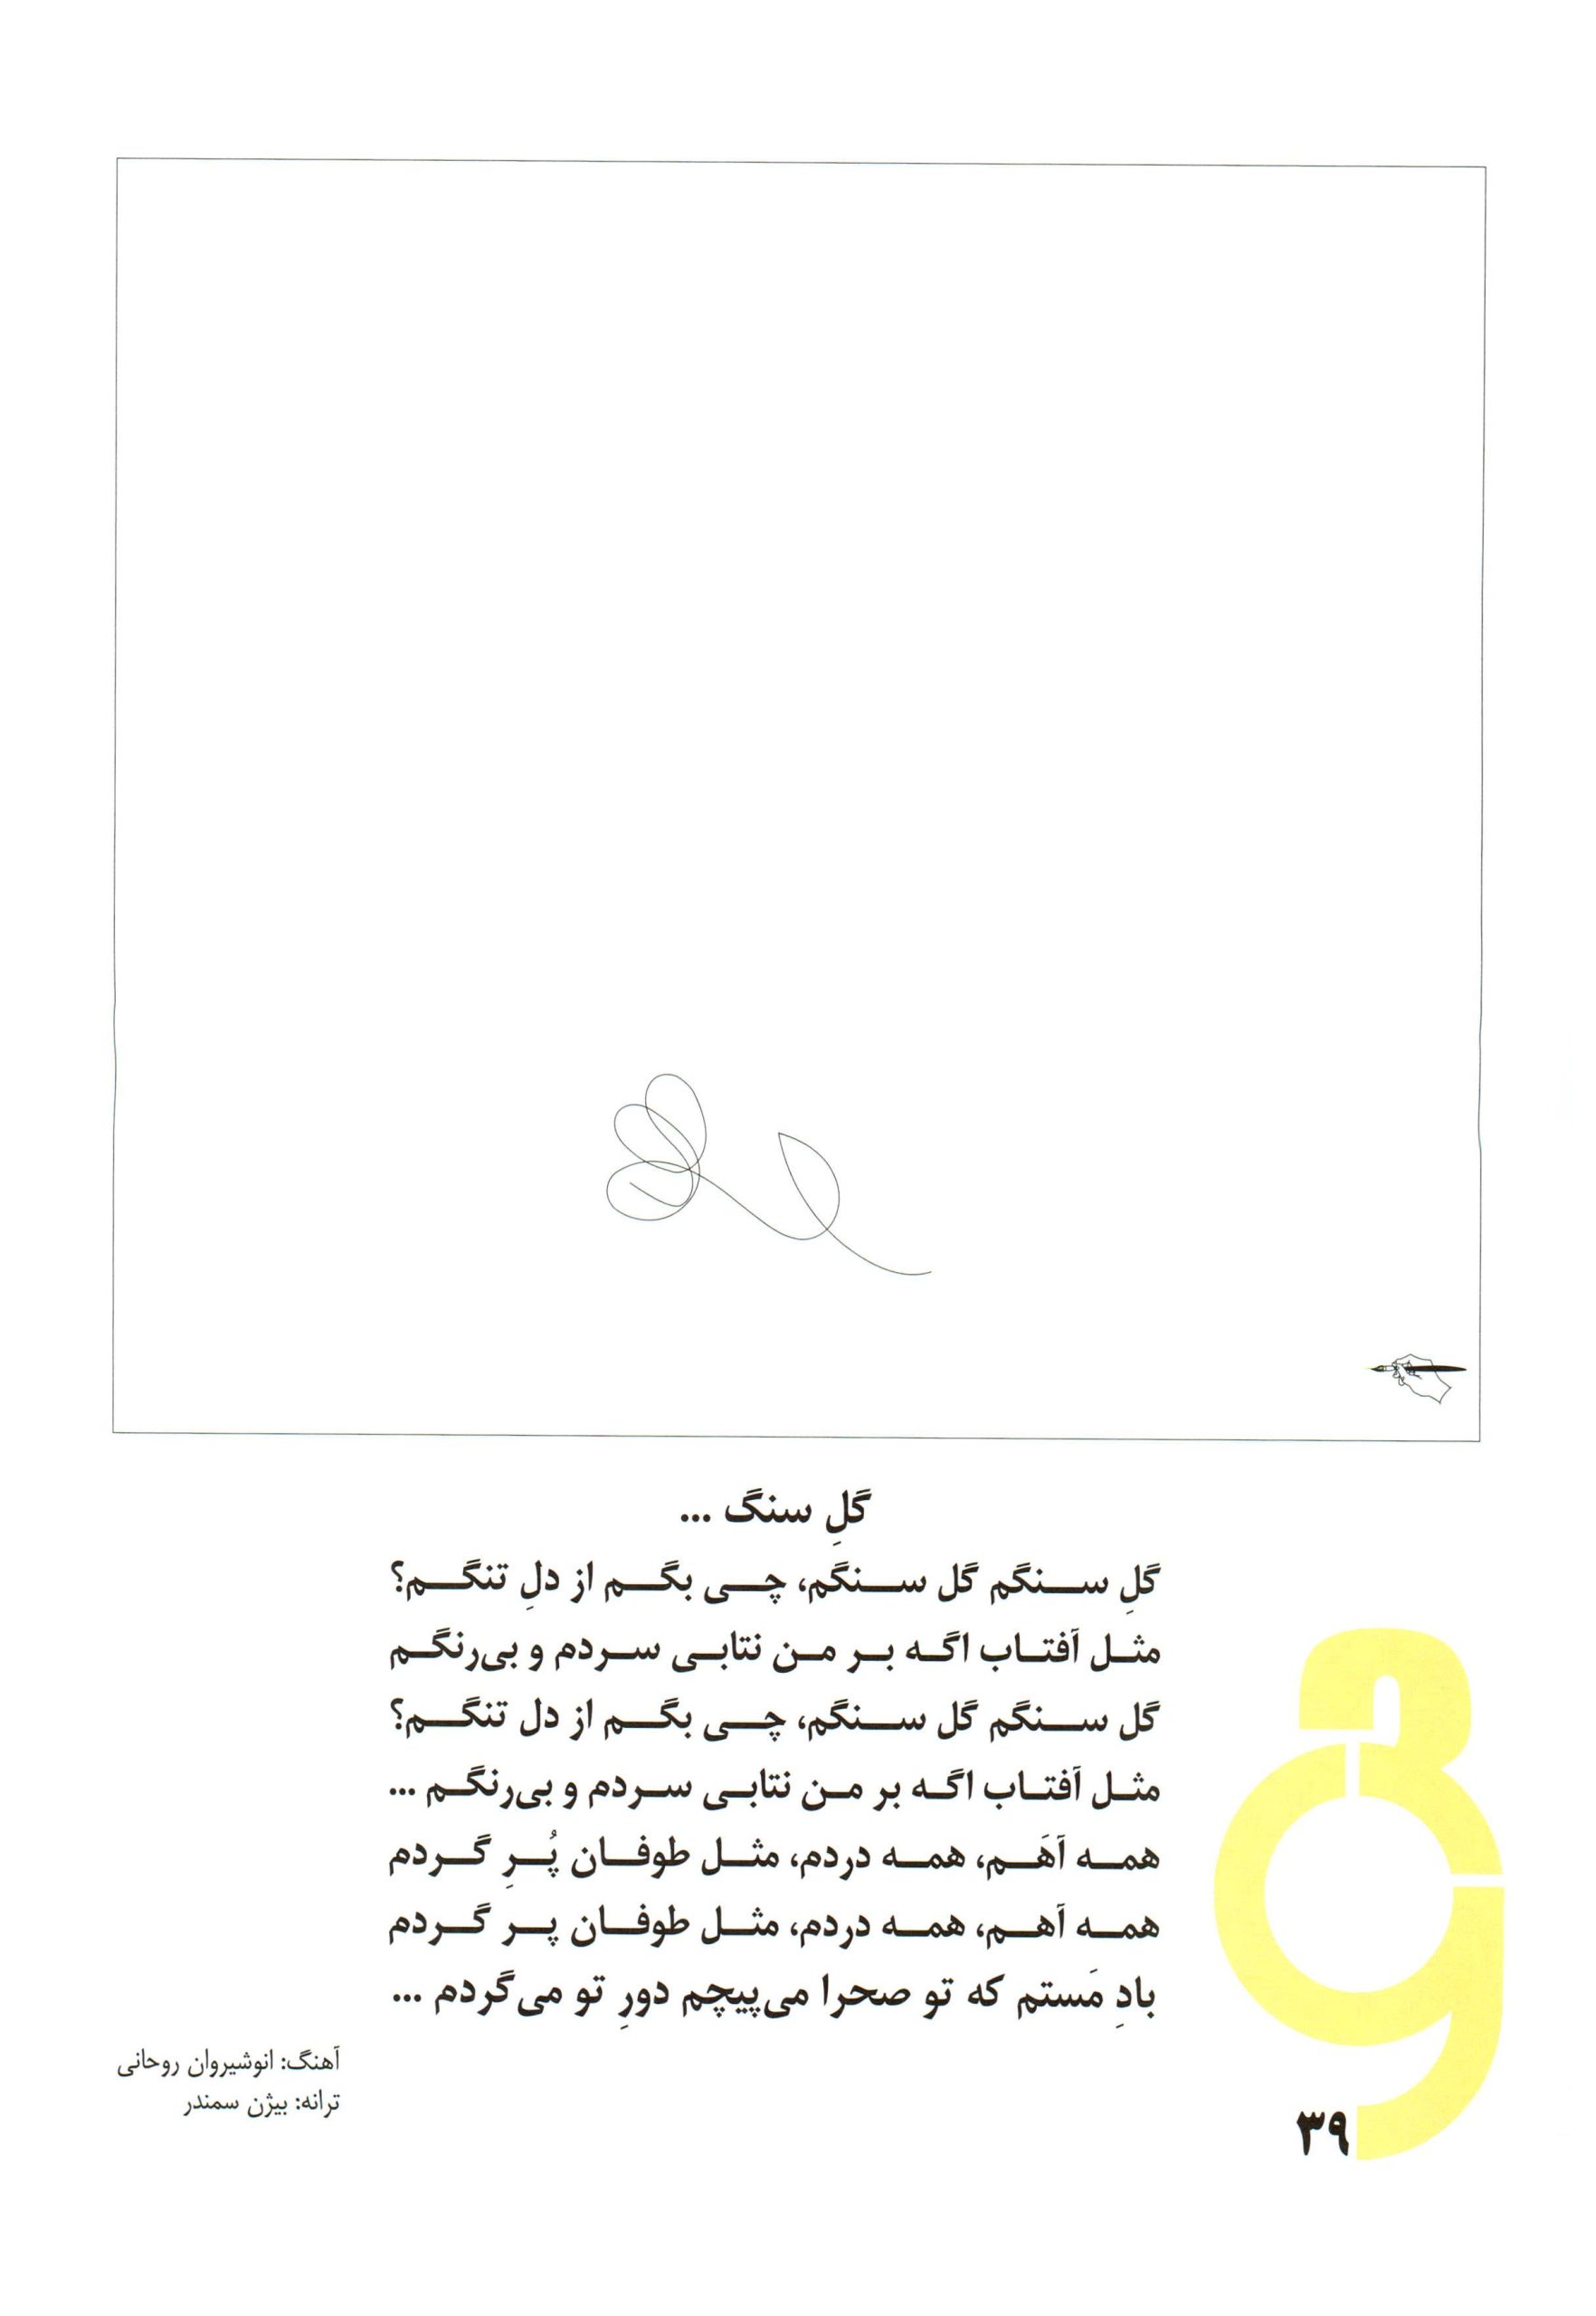 گلِ سنگ ...
گلِ سنگم گل سنگم، چی بگم از دلِ تنگم؟
مثل آفتاب اگه بر من نتابی سردم و بی‌رنگم
گل سنگم گل سنگم، چی بگم از دل تنگم؟
مثل آفتاب اگه بر من نتابی سردم و بی‌رنگم ...
همه آهَم، همه دردم، مثل طوفان پُرِ گردم
همه آهم، همه دردم، مثل طوفان پر گردم
بادِ مَستم که تو صحرا می‌پیچم دورِ تو می‌گردم ...
آهنگ: انوشیروان روحانی
ترانه: بیژن سمندر
۳۹